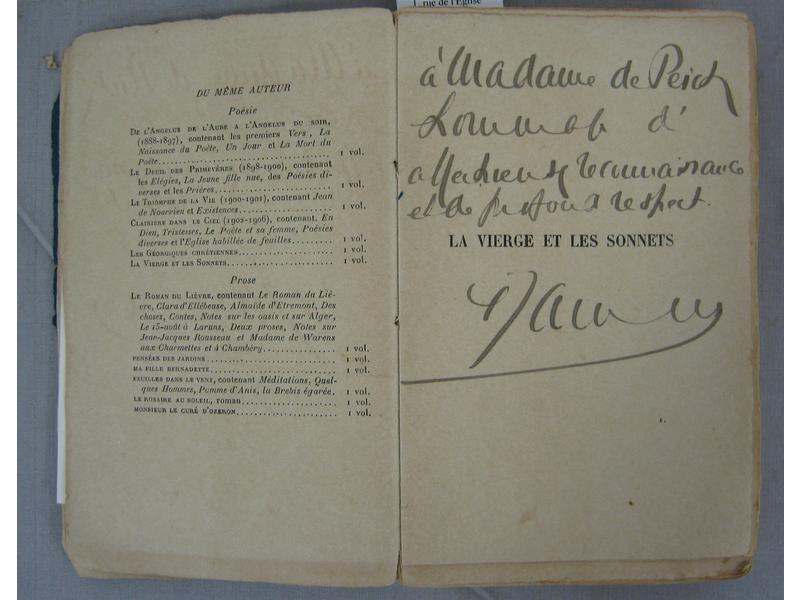 1, rue de l'Eglise
DU MÊME AUTEUR
Poésie
DE L'ANGELUS DE L'AUBE A L'ANGELUS DU SOIR,
(1888-1897), contenant les premiers Vers, La
Naissance du Poète, Un Jour et La Mort du
Poète.......... 1 vol.
LE DEUIL DES PRIMEVÈRES (1898-1900), contenant
les Elégies, La Jeune fille nue, des Poésies di-
verses et les Prières.......... 1 vol.
LE TRIOMPHE DE LA VIE (1900-1901), contenant Jean
de Noarrieu et Existences.......... 1 vol.
CLAIRIÈRE DANS LE CIEL (1902-1906), contenant, En
Dieu, Tristesses, Le Poète et sa femme, Poésies
diverses et l'Eglise habillée de feuilles.......... 1 vol.
LES GÉORGIQUES CHRÉTIENNES.......... 1 vol.
LA VIERGE ET LES SONNETS.......... 1 vol.
Prose
LE ROMAN DU LIÈVRE, contenant Le Roman du Liè-
vre, Clara d'Ellébeuse, Almaïde d'Etremont, Des
choses, Contes, Notes sur les oasis et sur Alger,
Le 15-août à Laruns, Deux proses, Notes sur
Jean-Jacques Rousseau et Madame de Warens
aux Charmettes et à Chambéry.......... 1 vol.
PENSÉES DES JARDINS.......... 1 vol.
MA FILLE BERNADETTE.......... 1 vol.
FEUILLES DANS LE VENT, contenant Méditations, Quel-
ques Hommes, Pomme d'Anis, la Brebis égarée. 1 vol.
LE ROSAIRE AU SOLEIL, roman.......... 1 vol.
MONSIEUR LE CURÉ D'OZERON.......... 1 vol.
à Madame de
hommage d'
affectueuse reconnaissance
et de profond respect.
LA VIERGE ET LES SONNETS
Jammes
1.